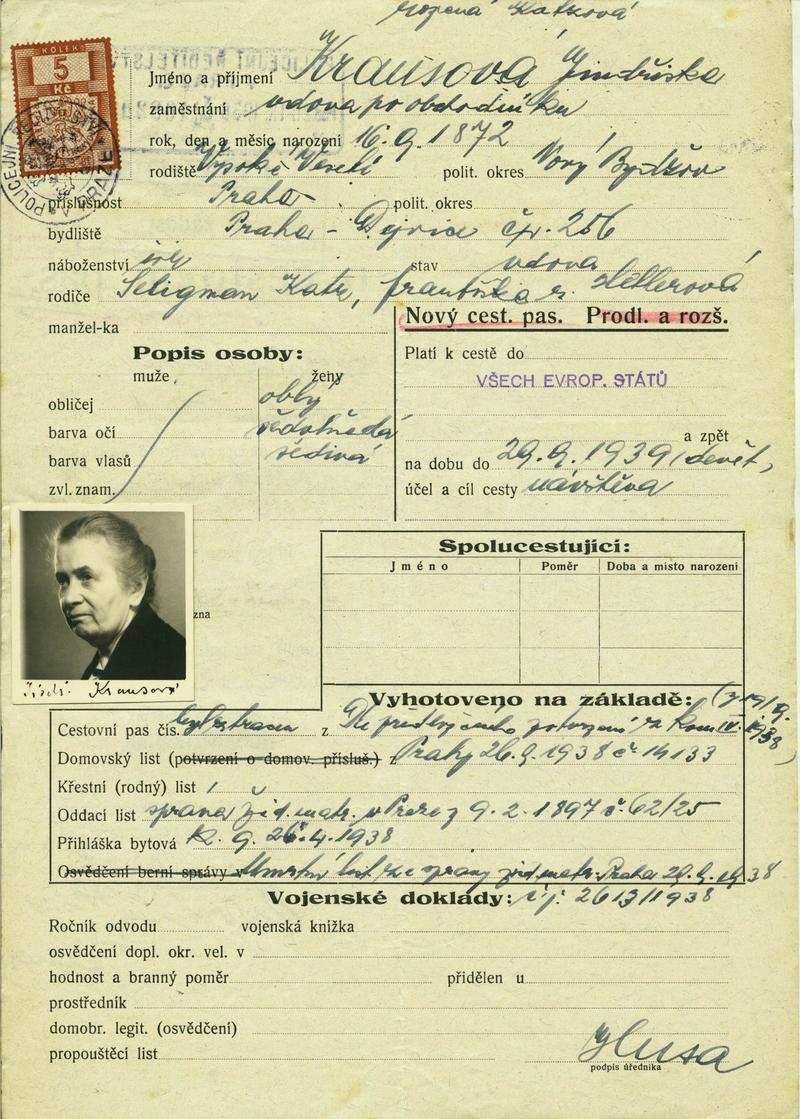 rozená Katzová
KOLEK
5
Kč
POLICEJNÍ ŘEDITELSTVÍ V PRAZE
Jméno a příjmení Krausová Jindřiška
zaměstnání vdova po obchodníku
rok, den a měsíc narození 16. 9. 1872
rodiště Vysoké Veselí polit. okres Nový Bydžov
příslušnost Praha polit. okres
bydliště Praha - Dejvice čp. 256
náboženství isr. stav vdova
rodiče Seligman Katz, Františka r.
manžel-ka
Nový cest. pas. Prodl. a rozš.
Popis osoby:
muže ženy
obličej oblý
barva očí šedohnědá
barva vlasů šedivá
zvl. znam.
Platí k cestě do
VŠECH EVROP. STÁTŮ
a zpět
na dobu do 29. 9. 1939 (devět)
účel a cíl cesty návštěva
zna
Jindř. Krausová
Spolucestující:
Jméno Poměr Doba a místo narození
Vyhotoveno na základě:
Cestovní pas čís. z
Domovský list (potvrzení o domov. přísluš.) z Prahy 26. 9. 1938 č 14133
Křestní (rodný) list
Oddací list správa žid. matr. v Praze z 9. 2. 1897 č. 62/25
Přihláška bytová 26. 4. 1938
Osvědčení berní správy Úmrtní list ze správy žid. matr. Praha 29. 9. 1938
Vojenské doklady: čj. 2613/1938
Ročník odvodu vojenská knížka
osvědčení dopl. okr. vel. v
hodnost a branný poměr přidělen u
prostředník
domobr. legit. (osvědčení)
propouštěcí list
Husa
podpis úředníka